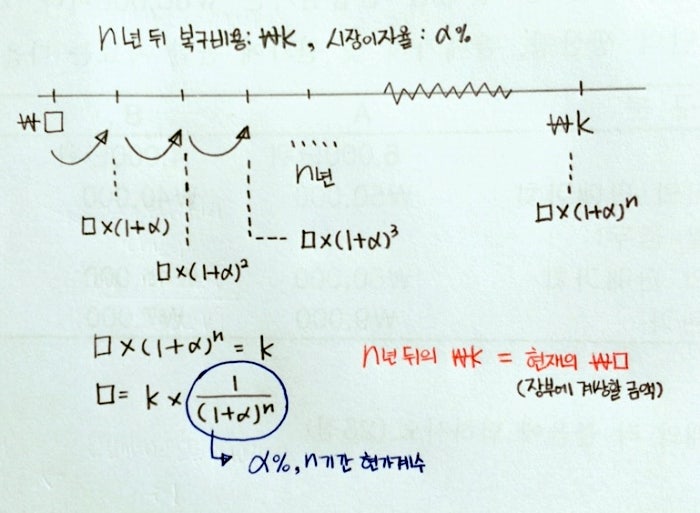 n년 뒤 복구비용: ₩k , 시장이자율 : α%
₩□
₩k
n년
□×(1+α)
□×(1+α)²
□×(1+α)³
□×(1+α)ⁿ
□×(1+α)ⁿ = k
□= k × 1/(1+α)ⁿ
α%, n기간 현가계수
n년 뒤의 ₩k = 현재의 ₩□
(장부에 계상할 금액)